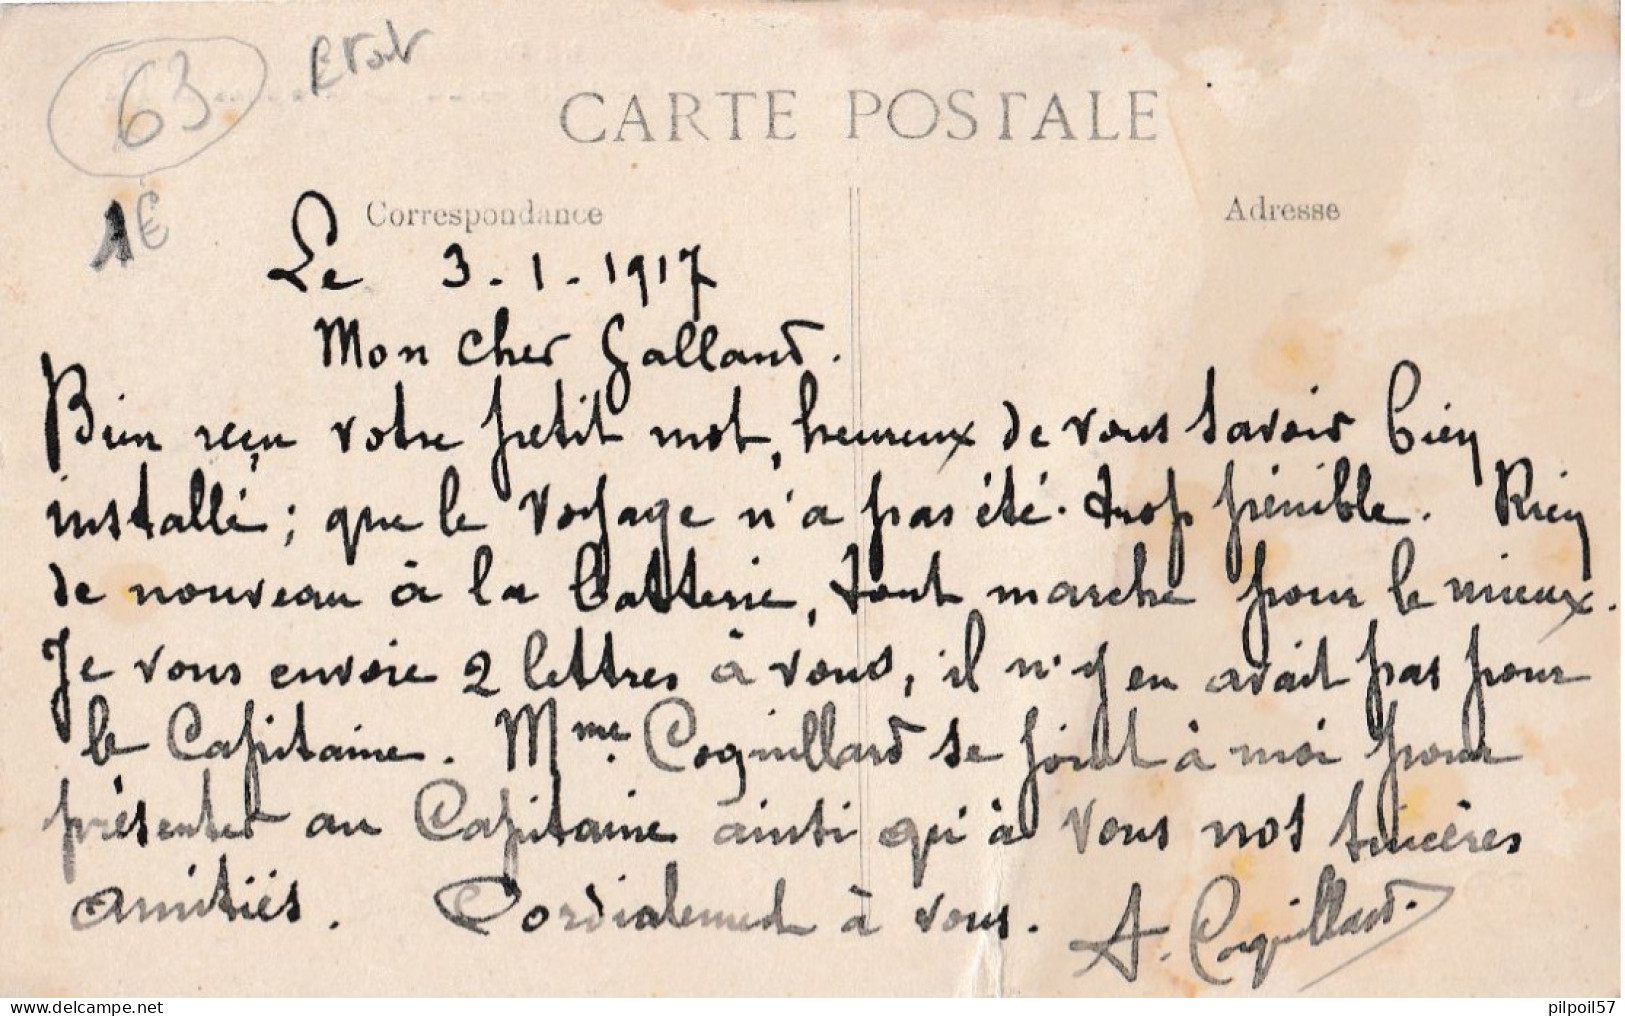 63
Etat
CARTE POSTALE
1€
Correspondance
Adresse
Le 3.1.1917
Mon cher Galland.
Bien reçu votre petit mot, heureux de vous savoir bien
installé ; que le voyage n'a pas été trop pénible. Rien
de nouveau à la batterie, tout marche pour le mieux.
Je vous envoie 2 lettres à vous, il n'y en avait pas pour
le Capitaine. Mme. Coquillard se joint à moi pour
présenter au Capitaine ainsi qu'à vous nos sincères
amitiés. Cordialement à vous. A. Coquillard.
pilpoil57